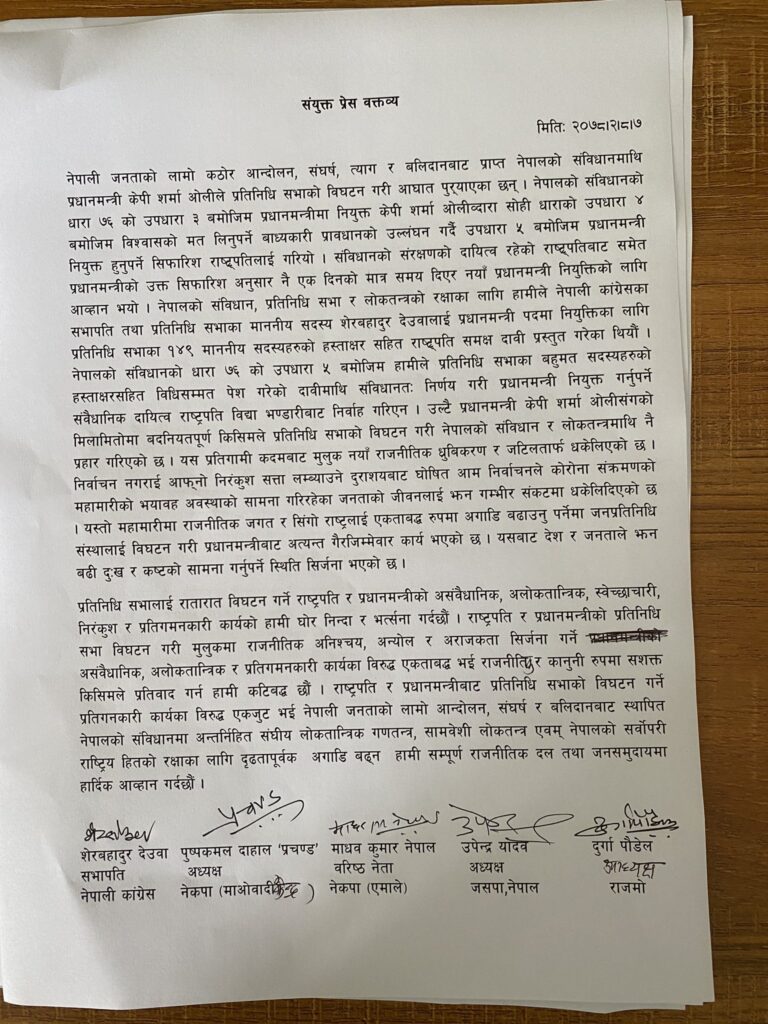 संयुक्त प्रेस वक्तव्य
मितिः २०७८।२।८।७
नेपाली जनताको लामो कठोर आन्दोलन, संघर्ष, त्याग र बलिदानबाट प्राप्त नेपालको संविधानमाथि
प्रधानमन्त्री केपी शर्मा ओलीले प्रतिनिधि सभाको विघटन गरी आघात पुर्‍याएका छन् । नेपालको संविधानको
धारा ७६ को उपधारा ३ बमोजिम प्रधानमन्त्रीमा नियुक्त केपी शर्मा ओलीव्दारा सोही धाराको उपधारा ४
बमोजिम विश्वासको मत लिनुपर्ने बाध्यकारी प्रावधानको उल्लंघन गर्दै उपधारा ५ बमोजिम प्रधानमन्त्री
नियुक्त हुनुपर्ने सिफारिश राष्ट्रपतिलाई गरियो । संविधानको संरक्षणको दायित्व रहेको राष्ट्रपतिबाट समेत
प्रधानमन्त्रीको उक्त सिफारिश अनुसार नै एक दिनको मात्र समय दिएर नयाँ प्रधानमन्त्री नियुक्तिको लागि
आव्हान भयो । नेपालको संविधान, प्रतिनिधि सभा र लोकतन्त्रको रक्षाका लागि हामीले नेपाली कांग्रेसका
सभापति तथा प्रतिनिधि सभाका माननीय सदस्य शेरबहादुर देउवालाई प्रधानमन्त्री पदमा नियुक्तिका लागि
प्रतिनिधि सभाका १४९ माननीय सदस्यहरुको हस्ताक्षर सहित राष्ट्रपति समक्ष दावी प्रस्तुत गरेका थियौं ।
नेपालको संविधानको धारा ७६ को उपधारा ५ बमोजिम हामीले प्रतिनिधि सभाका बहुमत सदस्यहरुको
हस्ताक्षरसहित विधिसम्मत पेश गरेको दावीमाथि संविधानतः निर्णय गरी प्रधानमन्त्री नियुक्त गर्नुपर्ने
संवैधानिक दायित्व राष्ट्रपति विद्या भण्डारीबाट निर्वाह गरिएन । उल्टै प्रधानमन्त्री केपी शर्मा ओलीसंगको
मिलामितोमा बदनियतपूर्ण किसिमले प्रतिनिधि सभाको विघटन गरी नेपालको संविधान र लोकतन्त्रमाथि नै
प्रहार गरिएको छ । यस प्रतिगामी कदमबाट मुलुक नयाँ राजनीतिक ध्रुबिकरण र जटिलतार्फ धकेलिएको छ ।
निर्वाचन नगराई आफ्‌नो निरंकुश सत्ता लम्ब्याउने दुराशयबाट घोषित आम निर्वाचनले कोरोना संक्रमणको
महामारीको भयावह अवस्थाको सामना गरिरहेका जनताको जीवनलाई झन गम्भीर संकटमा धकेलिदिएको छ
। यस्तो महामारीमा राजनीतिक जगत र सिंगो राष्ट्रलाई एकताबद्ध रुपमा अगाडि बढाउनु पर्नेमा जनप्रतिनिधि
संस्थालाई विघटन गरी प्रधानमन्त्रीबाट अत्यन्त गैरजिम्मेवार कार्य भएको छ । यसबाट देश र जनताले झन
बढी दुःख र कष्टको सामना गर्नुपर्ने स्थिति सिर्जना भएको छ ।
प्रतिनिधि सभालाई रातारात विघटन गर्ने राष्ट्रपति र प्रधानमन्त्रीको असंवैधानिक, अलोकतान्त्रिक, स्वेच्छाचारी,
निरंकुश र प्रतिगमनकारी कार्यको हामी घोर निन्दा र भर्त्सना गर्दछौं । राष्ट्रपति र प्रधानमन्त्रीको प्रतिनिधि
सभा विघटन गरी मुलुकमा राजनीतिक अनिश्चय, अन्योल र अराजकता सिर्जना गर्ने
असंवैधानिक, अलोकतान्त्रिक र प्रतिगमनकारी कार्यका विरुद्ध एकताबद्ध भई राजनीतिक र कानुनी रुपमा सशक्त
किसिमले प्रतिवाद गर्न हामी कटिबद्ध छौं । राष्ट्रपति र प्रधानमन्त्रीबाट प्रतिनिधि सभाको विघटन गर्ने
प्रतिगनकारी कार्यका विरुद्ध एकजुट भई नेपाली जनताको लामो आन्दोलन, संघर्ष र बलिदानबाट स्थापित
नेपालको संविधानमा अन्तर्निहित संघीय लोकतान्त्रिक गणतन्त्र, सामवेशी लोकतन्त्र एवम् नेपालको सर्वोपरी
राष्ट्रिय हितको रक्षाका लागि दृढतापूर्वक अगाडि बढ्न हामी सम्पूर्ण राजनीतिक दल तथा जनसमुदायमा
हार्दिक आव्हान गर्दछौं ।
शेरबहादुर देउवा पुष्पकमल दाहाल ‘प्रचण्ड’ माधव कुमार नेपाल उपेन्द्र यादव दुर्गा पौडेल
सभापति अध्यक्ष वरिष्ठ नेता अध्यक्ष अध्यक्ष
नेपाली कांग्रेस नेकपा (माओवादी केन्द्र) नेकपा (एमाले) जसपा,नेपाल राजमो